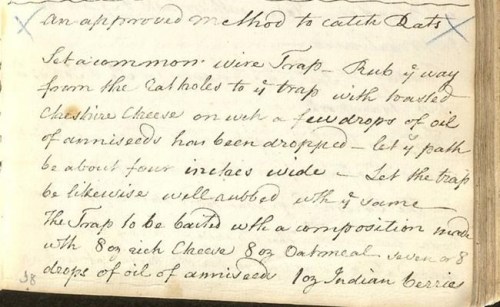 An approved Method to catch Rats
Set a common wire Trap – Rub ye way
from the Ratholes to ye trap with toasted
Cheshire Cheese on wch a few drops of oil
of anniseeds has been dropped – let ye path
be about four inches wide – Let the trap
be likewise well rubbed wth ye same
The Trap to be baited wth a composition made
wth 8 oz rich Cheese 8 oz Oatmeal seven or 8
drops of oil of anniseeds 1 oz Indian berries
38